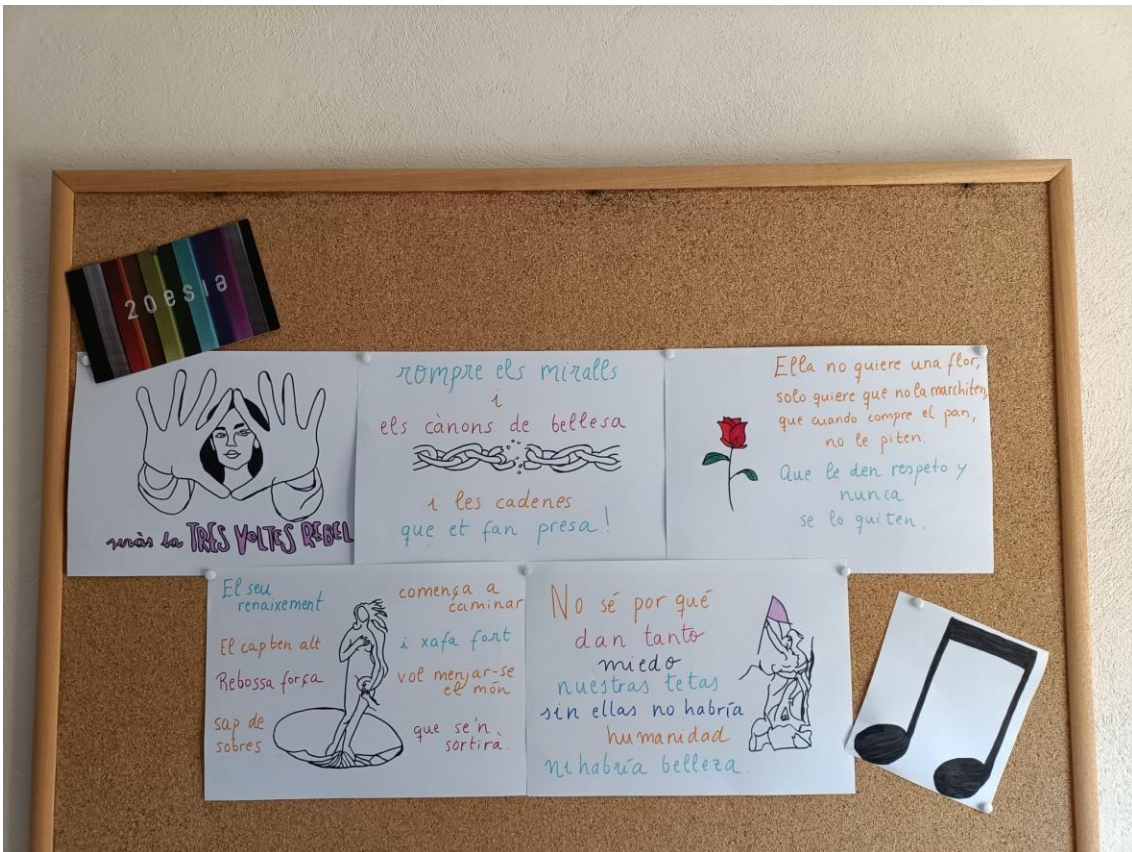 2oesia
seràs la TRES VOLTES REBEL
rompre els miralls
i
els cànons de bellesa
i les cadenes
que et fan presa!
Ella no quiere una flor,
solo quiere que no la marchiten,
que cuando compre el pan,
no le piten.
Que le den respeto y
nunca
se lo quiten.
El seu
renaixement
El cap ben alt
Rebossa força
sap de
sobres
comença a
caminar
i xafa fort
vol menjar-se
el món
que se'n
sortirà.
No sé por qué
dan tanto
miedo
nuestras tetas
sin ellas no habría
humanidad
ni habría belleza.